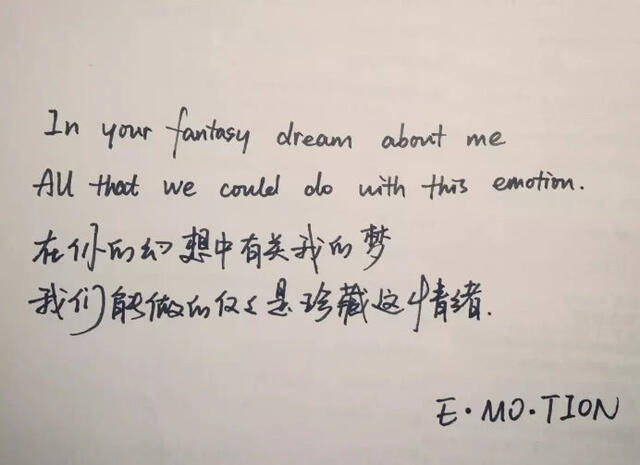 In your fantasy dream about me
All that we could do with this emotion.
在你的幻想中有关我的梦
我们能做的仅々是珍藏这情绪.
E·MO·TION